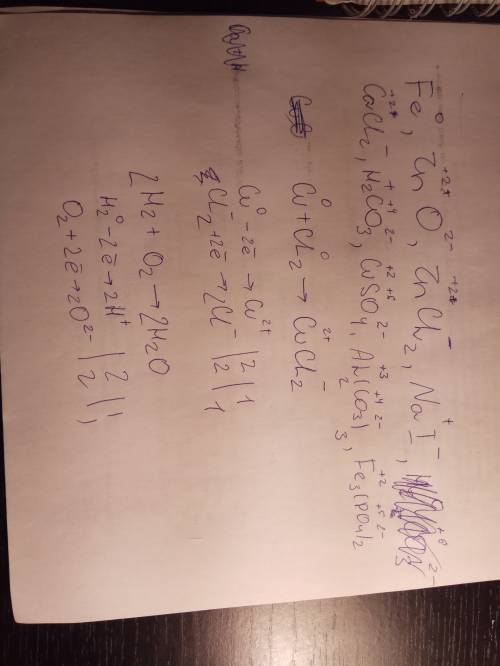 Fe⁰, Zn⁺²O²⁻, Zn⁺²Cl₂⁻, Na⁺I⁻,
CaCl₂⁻, H₂⁺C⁺⁴O₃²⁻, CuSO₄²⁻, Al₂⁺³(C⁺⁴O₃²⁻)₃, Fe₃⁺²(P⁺⁵O₄²⁻)₂
Cu⁰ + Cl₂⁰ → Cu²⁺Cl₂⁻
Cu⁰ - 2ē → Cu²⁺ |2|1
Cl₂ + 2ē → 2Cl⁻ |2|1
2H₂ + O₂ → 2H₂O
H₂⁰ - 2ē → 2H⁺ |2|1
O₂ + 2ē → 2O²⁻ |2